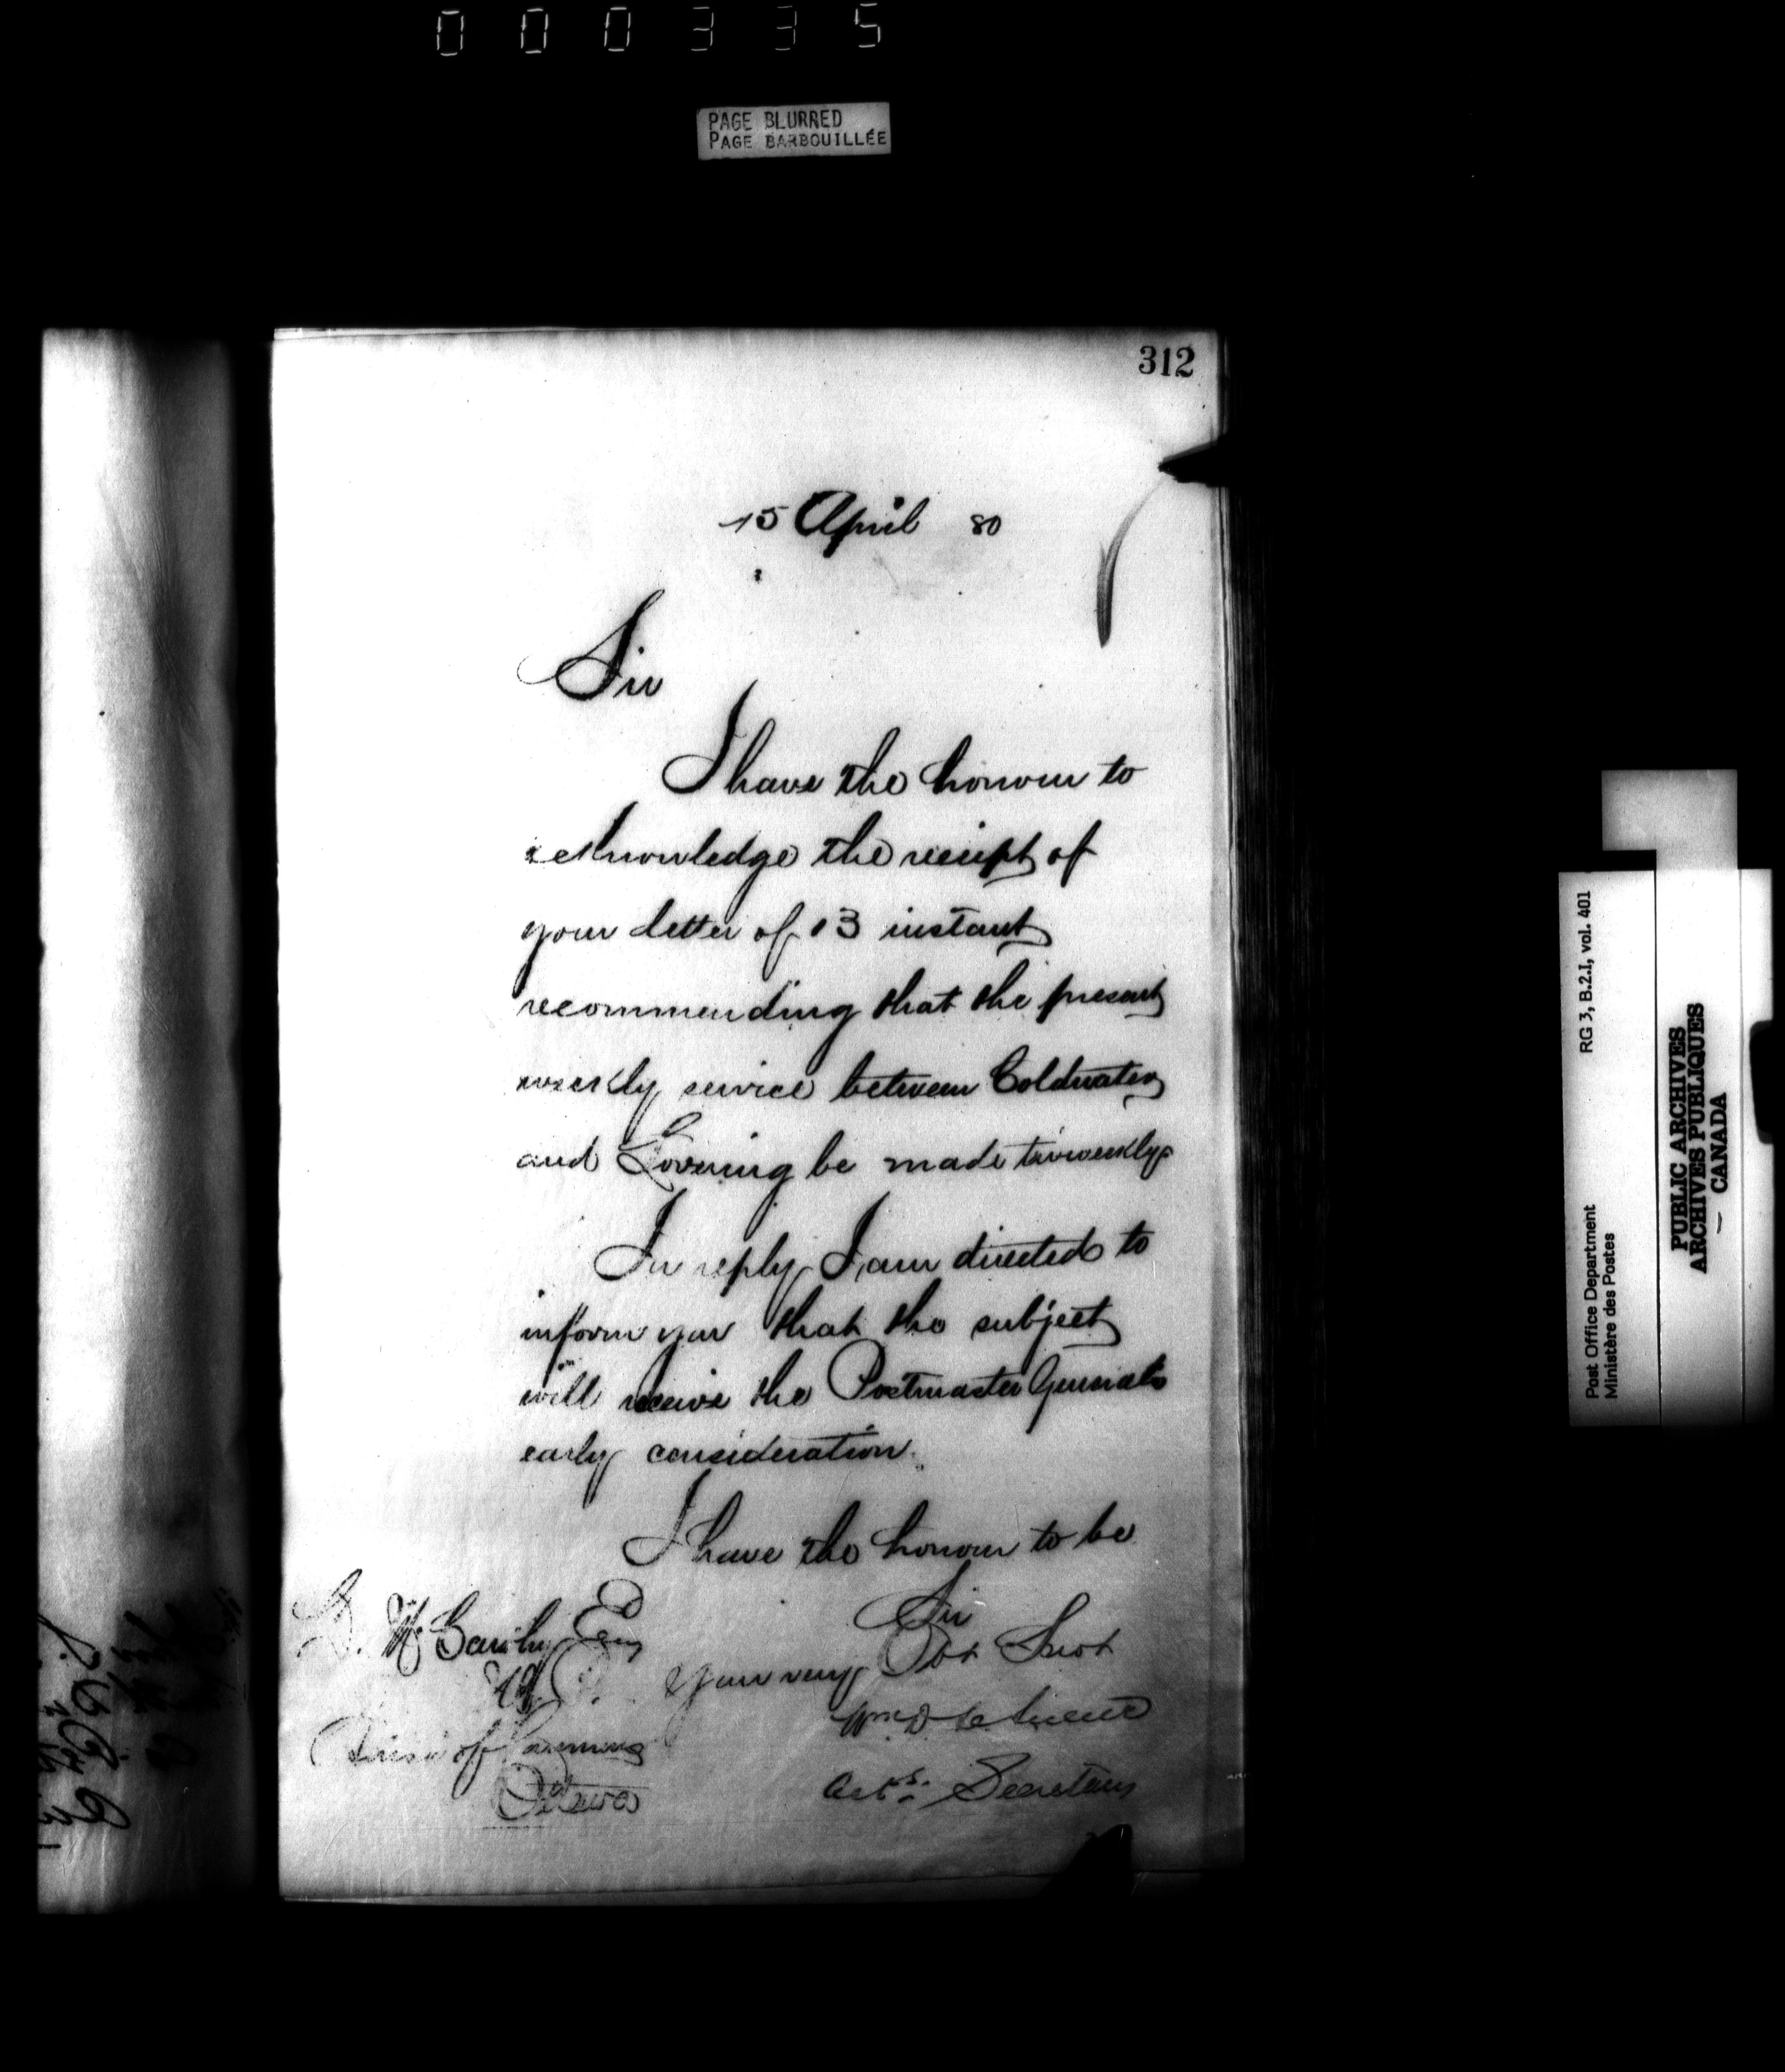 000335
PAGE BLURRED
PAGE BARBOUILLÉE
312
15 April 80
Sir
I have the honour to
acknowledge the receipt of
your letter of 13 instant
recommending that the present
weekly service between Coldwater
and Lovering be made triweekly
In reply I am directed to
inform you that the subject
will receive the Postmaster Generals
early consideration.
I have the honour to be
Sir
Your very Obt Servt
Wm D Le Sueur
Actg. Secretary
D. McCarthy Esq
M.P.
Ottawa
RG 3, B.2.I, vol. 401
Post Office Department
Ministère des Postes
PUBLIC ARCHIVES
ARCHIVES PUBLIQUES
CANADA